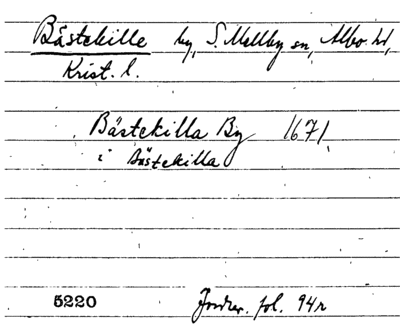 Bästekille by, S. Mellby sn, Albo hd,
Krist. l.
Bästekilla By 1671
i Bästekilla
5220 Jordrev. fol. 94r